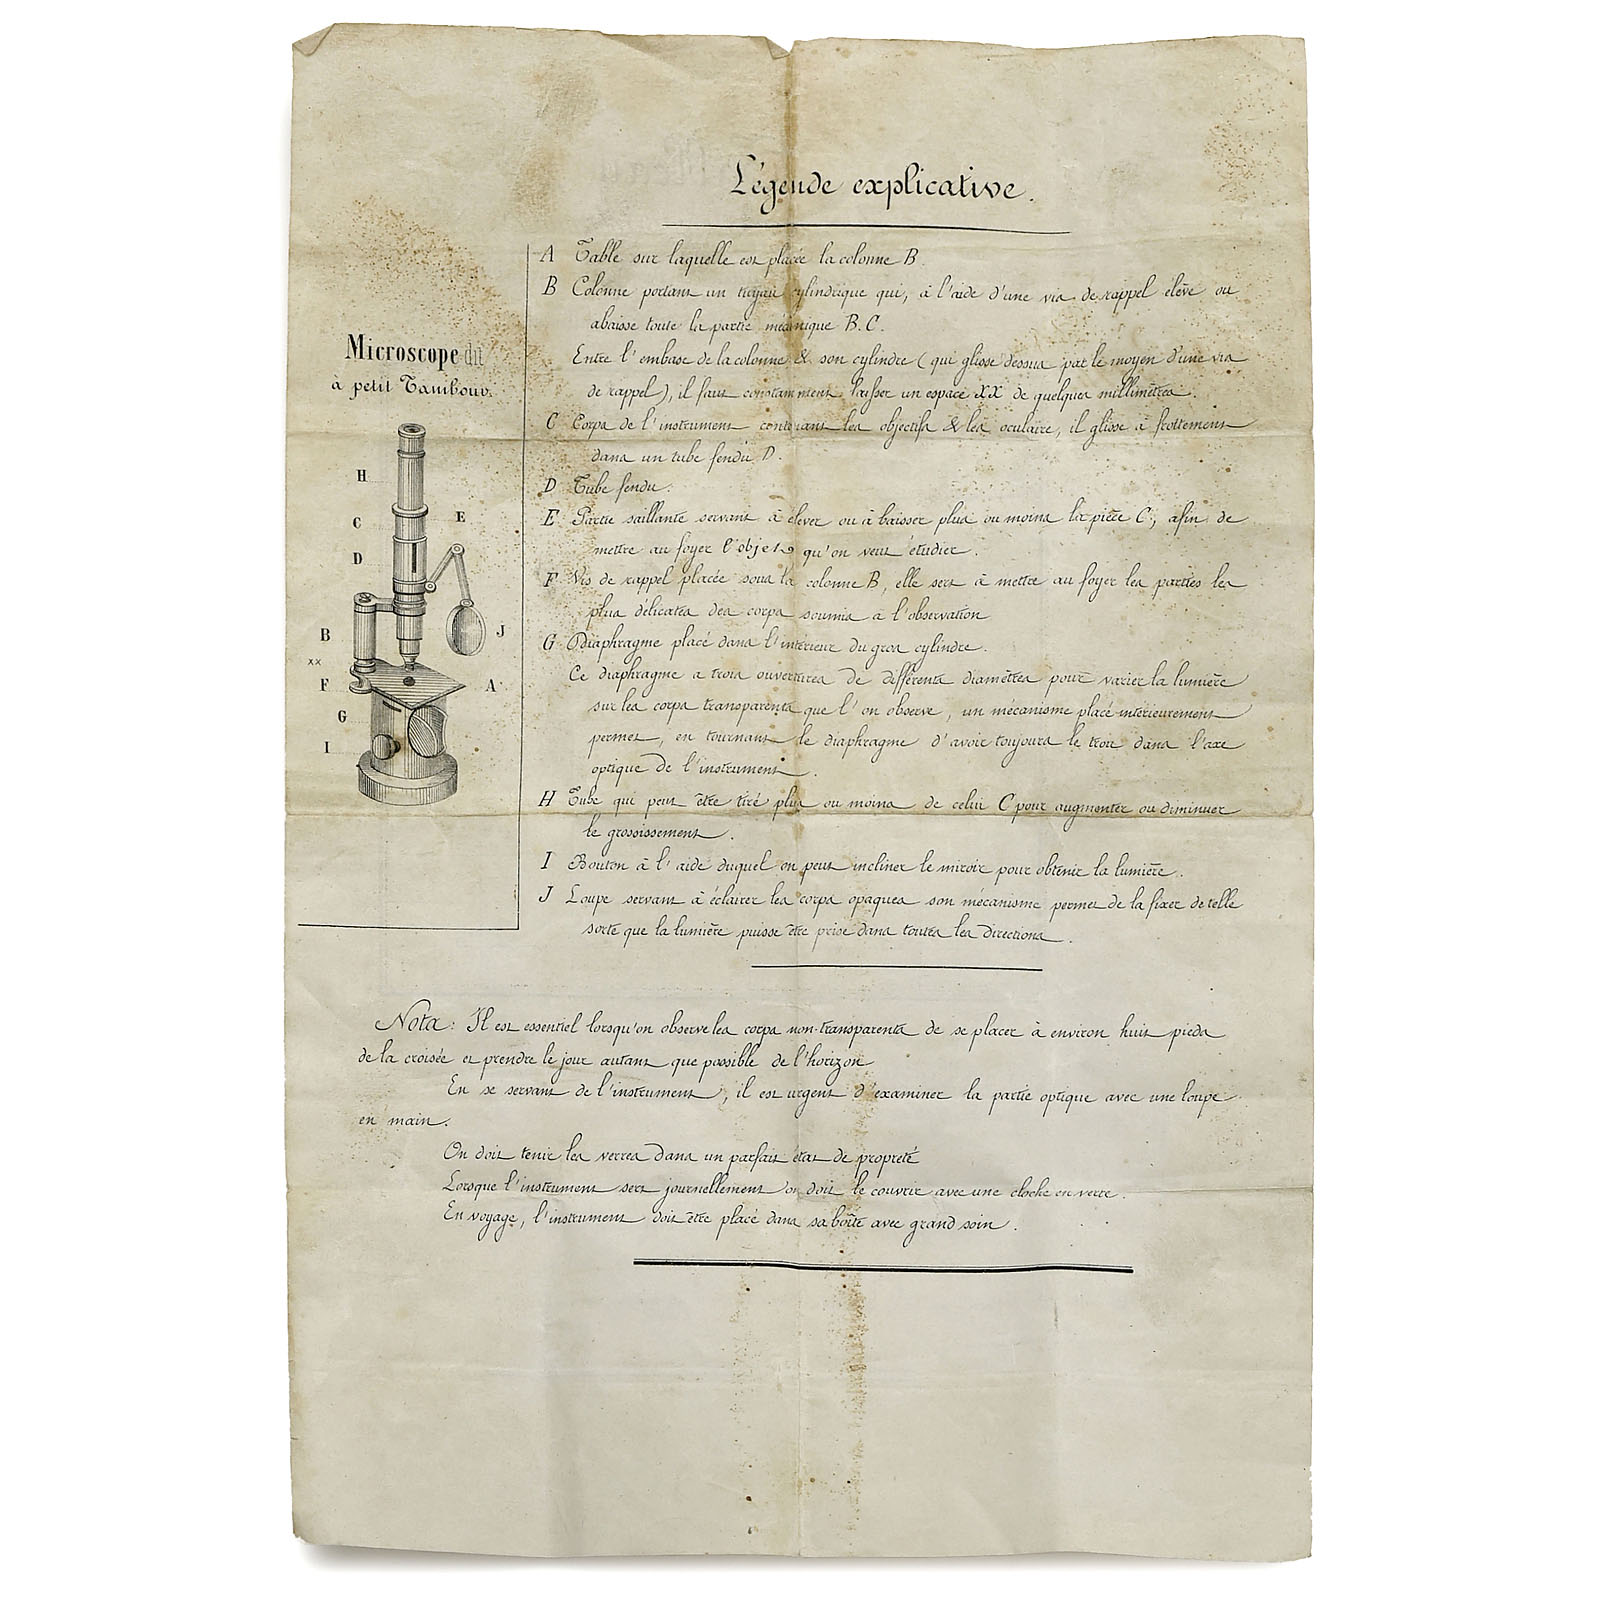 Légende explicative.
Microscope dit
à petit Tambour.
H
C
D
E
B
xx
J
F
A
G
I
A Table sur laquelle est placée la colonne B.
B Colonne portant un tuyau cylindrique qui, à l'aide d'une vis de rappel élève ou
abaisse toute la partie mécanique B.C.
Entre l'embase de la colonne & son cylindre (qui glisse dessus par le moyen d'une vis
de rappel), il faut constamment laisser un espace XX de quelques millimètres.
C Corps de l'instrument contenant les objectifs & les oculaire, il glisse à frottement
dans un tube fendu D.
D Tube fendu.
E Partie saillante servant à élever ou à baisser plus ou moins la pièce C, afin de
mettre au foyer l'objet qu'on veut étudier.
F Vis de rappel placée sous la colonne B, elle sert à mettre au foyer les parties les
plus délicates des corps soumis à l'observation
G Diaphragme placé dans l'intérieur du gros cylindre.
Ce diaphragme a trois ouvertures de différents diamètres pour varier la lumière
sur les corps transparents que l'on observe, un mécanisme placé intérieurement
permet, en tournant le diaphragme d'avoir toujours le trou dans l'axe
optique de l'instrument.
H Tube qui peut être tiré plus ou moins de celui C pour augmenter ou diminuer
le grossissement.
I Bouton à l'aide duquel on peut incliner le miroir pour obtenir la lumière.
J Loupe servant à éclairer les corps opaques son mécanisme permet de la fixer de telle
sorte que la lumière puisse être prise dans toutes les directions.
Nota: Il est essentiel lorsqu'on observe les corps non-transparents de se placer à environ huit pieds
de la croisée et prendre le jour autant que possible de l'horizon
En se servant de l'instrument, il est urgent d'examiner la partie optique avec une loupe
en main.
On doit tenir les verres dans un parfait état de propreté
Lorsque l'instrument sert journellement on doit le couvrir avec une cloche en verre.
En voyage, l'instrument doit être placé dans sa boîte avec grand soin.